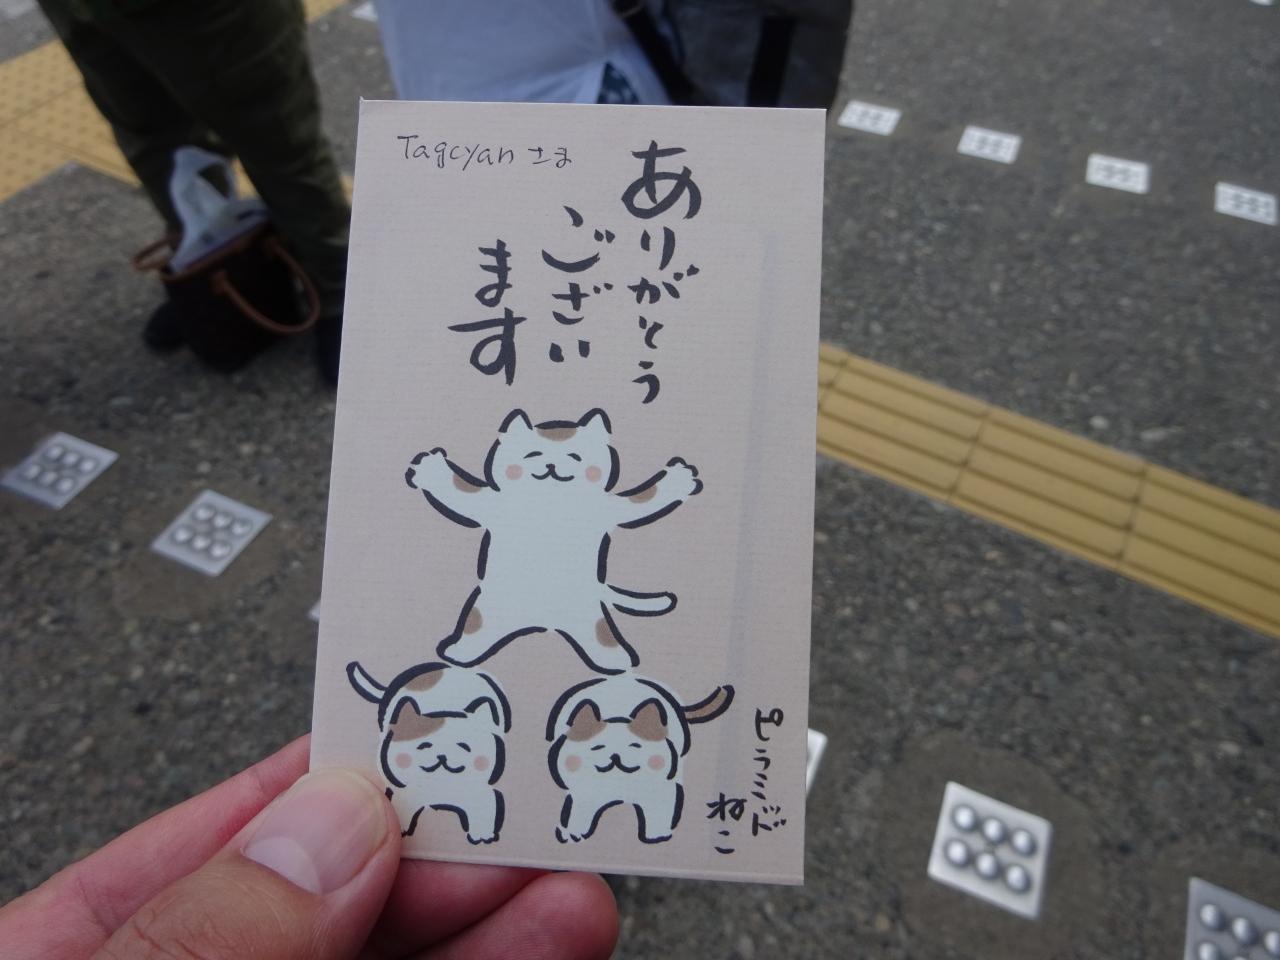 Tagcyan さま
ありがとう
ござい
ます
ピラミッド
ねこ